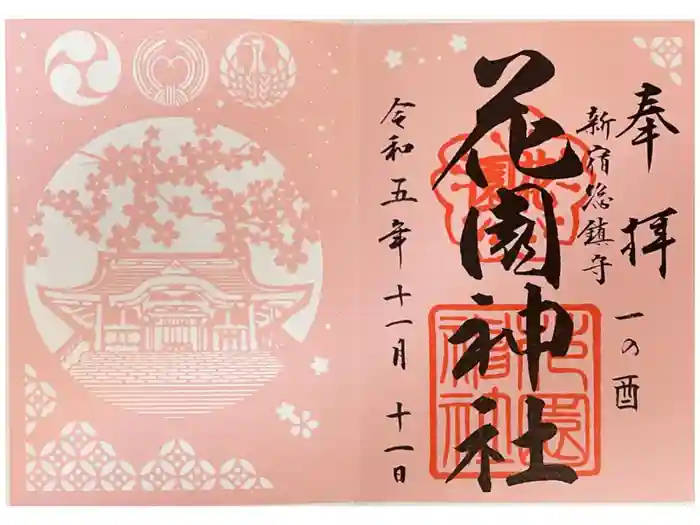 奉拝
一の酉
新宿総鎮守
花園神社
花園神社
令和五年十一月十一日